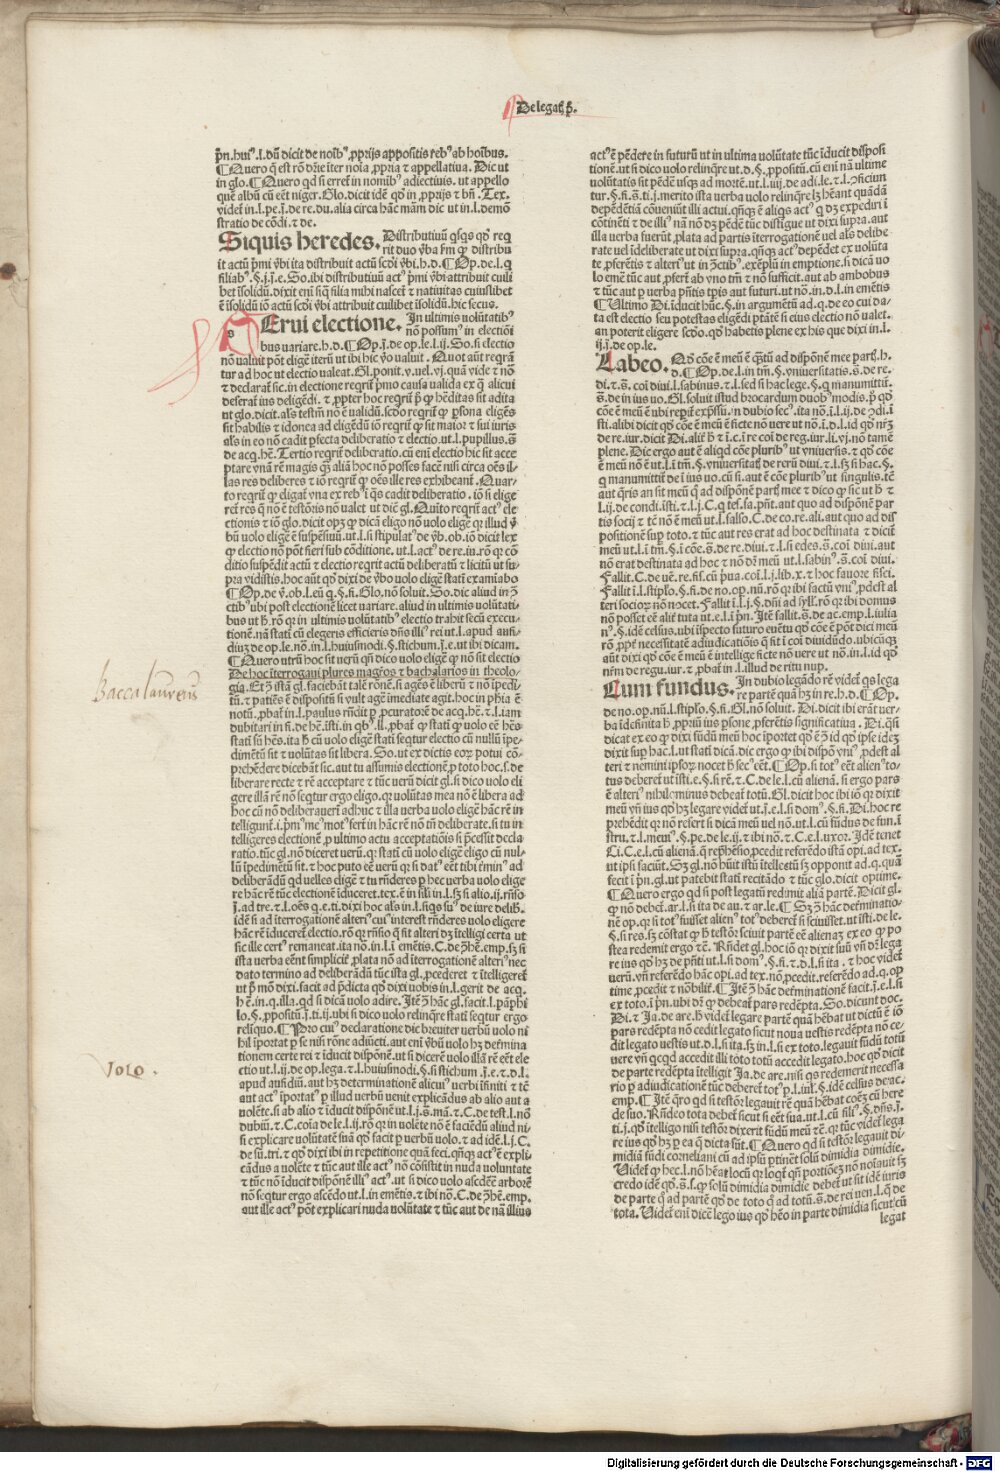 De legat̄ p̄.
p̄n.hui⁹.l.dū dicit de noīb⁹ ꝓprijs appositis reb⁹ ab hoībus.
¶Quero q̄ est rō dr̄ie īter noīa ꝓpria ⁊ appellatiua. Dic ut
in glo.¶Quero qd si erret̄ in nomib⁹ adiectiuis. ut appello
quē albū cū eēt niger. Glo. dicit idē qd̓ in ꝓprijs ⁊ bn̄. Tex.
videt̄ in.l.pe.ī.de re.du.alia circa hāc mām dic ut in.l.demō
stratio de cōdi.⁊ de.
Siquis heredes. Distributiuū
rit duo v̄ba
it actū p̄mi v̄bi ita distribuit actū scd̓i v̄bi.h.d.¶Op.de.l.q
filiab⁹.§.j.j.e. So.ibi distributiuū act⁹ p̄mi v̄bi attribuit cuili
bet īsolidū. dixit eni siq̄ filia mihi nascet̄ ⁊ natiuitas cuiuslibet
ē īsolidū iō actū scd̓i v̄bi attribuit cuilibet īsolidū.hic secus.
Serui electione. In ultimis uolūtatib⁹
nō possum⁹ in electiōi
bus uariare.h.d.¶Op.j.de op.le.l.ij. So.si electio
nō ualuit pōt eligē iterū ut ibi hic v̄o ualuit. Quot aūt reqrā
tur ad hoc ut electio ualeat. Gl.ponit.v.uel.vj.quā vide ⁊ nō
⁊ declarat̄ sic.in electione reqrit̄ p̄mo causa ualida ex q̄ alicui
deferat̄ ius deligēdi. ⁊ ꝓpter hoc reqrit̄ ꝙ hēditas sit adita
sit habilis ⁊ idonea ad eligēdū iō reqrit̄ ꝙ sit maior ⁊ sui iuris
als in eo nō cadit ꝑfecta deliberatio ⁊ electio.ut.l.pupillus.s̄
de acq.hē. Tertio reqrit̄ deliberatio. cū eni electio hic sit acce
ptare vnā rē magis ꝙ aliā hoc nō posses facē nisi circa oēs il
las res deliberes ⁊ iō reqrit̄ ꝙ oēs ille res exhibeant̄. Quar⸗
to reqrit̄ ꝙ eligat̄ vna ex reb⁹ ī q̄s cadit deliberatio.iō si elige
rei res q̄ nō ē testōris nō ualet ut dic̄ gl. Quito reqrit̄ act⁹ ele
ctionis ⁊ iō glo. dicit opz ꝙ dicā eligo nō uolo eligē qr illud v̄
bū uolo eligē ē suspēsiuū.ut.l.si stipulat⁹ de v̄b.ob.iō dicit lex
ꝙ electio nō pōt fieri sub cōditione.ut.l.act⁹ de re.iu.rō qr cō
ditio suspēdit actū ⁊ electio reqrit actū deliberatū ⁊ licitū ut su⸗
pra vidistis.hoc aūt qd̓ dixi de v̄bo uolo eligē statī examīabo
¶Op.de v̄.ob.l.eū q̄.§.fi. Glo.nō soluit. So.dic aliud in ꝯ
ctib⁹ ubi post electionē licet uariare.aliud in ultimis uolūtati⸗
bus ut h̄.rō qr in ultimis uolūtatib⁹ electio trahit secū execu⸗
tionē.nā statī cū elegeris efficieris dn̄s illi⁹ rei ut.l.apud aufi⸗
diuz de op.le.nō.in.l.huiusmodi.§.stichum.j̄.e.ut ibi dicam.
¶Quero utrū hoc sit uerū qn̄ dico uolo eligē ꝙ nō sit electio
De hoc īterrogaui plures magr̄os ⁊ bachalarios in theolo⸗
Baccalaureus
gia. Et ꝯ istā gl. faciebāt talē rōnē.si agēs ē liberū ⁊ nō īpedi⸗
tū.⁊ patiēs ē dispositū si vult agē īmediate agit.hoc in phīa ē
dubitari in fi.de hē.isti.in qb⁹.ll.ꝓbat̄ ꝙ statī ꝙ uolo eē hēs
statī sū hēs.ita h̄ cū uolo eligē statī seqtur electio cū nullū īpe⸗
dimētū sit ⁊ uolūtas sit libera. So.ut ex dictis eoꝝ potui cō⸗
prehēdere dicebāt sic.aut tu assumis electionē ꝓ toto hoc.s.de
liberare recte ⁊ rē acceptare ⁊ tūc uerū dicit gl.si dico uolo eli
gere illā rē nō seqtur ergo eligo.qr uolūtas mea nō ē libera ad
hoc cū nō deliberauerī adhuc ⁊ illa verba uolo eligē hāc rē in
telligeres electionē ꝓ ultimo actu acceptatiōis si p̄cessit decla
ratio.tūc gl.nō diceret uerū.qr statī cū uolo eligē eligo cū nul⸗
lū īpedimētū sit.⁊ hoc puto eē verū qr si dat⁹ eēt tibi t̄min⁹ ad
deliberādū qd uelles eligē ⁊ tu rn̄deres ꝑ hec verba uolo elige
re hāc rē tūc electionē iduceret.
j̄.ad tre.⁊.l.oēs q.e.ti.dixi hoc als in.l.siqs su⁹ de iure delib̄.
idē si ad īterrogationē alteri⁹ cui⁹ interest rn̄deres uolo eligere
hāc rē īduceret electio.rō qr rn̄sio q̄ fit alteri dz ītelligi certa ut
sic ille cert⁹ remaneat.ita nō.in.l.i emētis.C.de ꝯhē.emp.sz si
ista verba eēnt simplicit̄ ꝓlata nō ad īterrogationē alteri⁹ nec
dato termino ad deliberādū tūc ista gl.ꝓcederet ⁊ ītelligeret̄
ut p̄ mō dixi.facit ad p̄dicta qd̓ dixi uobis in.l.gerit de acq.
hē.in.q.illa.qd si dicā uolo adire. Itē ꝯ hāc gl.facit.l.pāphi
lo.§.ꝓpositū.j̄.ti.ij.ubi si dico uolo relinqre statī seqtur ergo
relīquo.¶Pro cui⁹ declaratione dic breuiter verbū uolo ni
hil īportat ꝑ se nisi rōne adiūcti.aut eni v̄bū uolo hz determina
tionem certe rei ⁊ īducit dispōnē.ut si dicerē uolo illā rē eēt ele
Volo.
ctio ut.l.ij.de op.lega.⁊.l.huiusmodi.§.si stichum.j̄.e.⁊.d.l.
apud aufidiū.aut hz determinationē alicui⁹ verbi īfiniti ⁊ tē
aut act⁹ īportat⁹ ꝑ illud verbū venit explicādus ab alio aut a
uolēte.si ab alio ⁊ īducit dispōnē ut.l.j.s̄.mā.⁊.C.de test.l.nō
dubiū.⁊.C.cōia de le.l.ij.rō qr in uolēte nō ē faciēdū aliud ni⸗
si explicare uolūtatē suā qd̓ facit ꝑ verbū uolo.⁊ ad idē.l.j.C.
de sū.tri.⁊ qd̓ dixi ibi in repetitione quā feci.qn̄qꝫ act⁹ ē expli⸗
cādus a uolēte ⁊ tūc aut ille act⁹ nō cōsistit in nuda uoluntate
⁊ tūc nō īducit dispōnē illi⁹ act⁹.ut si dico uolo ascēdē arborē
nō seqtur ergo ascēdo ut.l.in emētis.⁊ ibi nō.C.de ꝯhē.emp.
aut ille act⁹ pōt explicari nuda uolūtate ⁊ tūc aut de nā illius
act⁹ ē pēdere in futurū ut in ultima uolūtate tūc īducit disposi
tionē.ut si dico uolo relinqre ut.d.§.ꝓpositū.cū eni nā ultime
uolūtatis sit pēdē usqꝫ ad mortē.ut.l.iiij.de adi.le.⁊.l.ꝯficiun
tur.§.fi.s̄.ti.j.merito ista verba uolo relinqre lz hēant quādā
depēdētiā cōueniūt illi actui.qn̄qꝫ ē aliqs act⁹ q dz expediri ī
cōtinēti ⁊ de illi⁹ nā nō dz pēdē tūc distīgue ut dixi supra.aut
illa verba fuerūt ꝓlata ad partis īterrogationē uel als delibe⸗
rate uel ideliberate ut dixi supra.qn̄qꝫ act⁹ depēdet ex uolūta
te ꝓferētis ⁊ alteri⁹ ut in ꝯctib⁹.exēplū in emptione.si dicā uo
lo emē tūc aut ꝓfert̄ ab vno tm̄ ⁊ nō sufficit.aut ab ambobus
⁊ tūc aut ꝑ verba pn̄tis tp̄is aut futuri.ut nō.in.d.l.in emētis
¶Ultimo Di.īducit hāc.§.in argumētū ad.q.de eo cui da⸗
ta est electio seu potestas eligēdi ptātē si eius electio nō ualet.
an poterit eligere scd̓o.qd̓ habetis plene ex his que dixi in.l.
ij.j̄.de op.le.
Labeo. Qd̓ cōe ē meū ē q̄tū ad dispōnē mee part̄.h.
d.¶Op.de.l.in tm̄.§.vniuersitatis.s̄.de re.
di.⁊.s̄.coī diui.l.sabinus.⁊.l.sed si hac lege.§.q manumittit̄.
s̄.de in ius uo. Gl.soluit istud brocardum duob⁹ modis.p̄ qd̓
cōe ē meū ē ubi reperit̄ exp̄ssū.in dubio sec⁹.ita nō.ī.l.ij.de ꝯdi.ī
sti.alibi dicit qd̓ cōe ē meū ē ficte nō uere ut nō.ī.d.l.id qd̓ nr̄ꝫ
de re.iur. dicit Di.alit̄ h̄ ⁊ ī.c.ī re cōi de reg.iur.li.vj.nō tamē
plene. Dic ergo aut ē aliqd cōe plurib⁹ ut vniuersis.⁊ qd̓ cōe
ē meū nō ē ut.l.ī tm̄.§.vniuersitat̄ de rerū diui.⁊.l.sz si hac.§.
q manumittit̄ de ī ius uo.cū si.aut ē cōe plurib⁹ ut singulis.tē
aut q̄ris an sit meū q̄ ad dispōnē part̄ mee ⁊ dico ꝙ sic ut h̄ ⁊
tis socij ⁊ tē nō ē meū ut.l.falso.C.de co.re.ali.aut quo ad dis
positionē sup toto.⁊ tūc aut res erat ad hoc destinata ⁊ dicit̄
meū ut.l.ī tm̄.§.ī cōe.s̄.de re.diui.⁊.l.si edes.s̄.coī diui.aut
nō erat destinata ad hoc ⁊ nō dr̄ meū ut.l.sabin⁹.s̄.coī diui.
Fallit̄.C.de uē.re.fis.cū p̄ua.coī.l.j.lib.x.⁊ hoc fauore fisci.
teri socioꝝ nō nocet. Fallit ī.l.j.§.dn̄i ad syll.rō qr ibi domus
nō posset eē alit̄ tuta ut.e.l.ī p̄n. Itē fallit.s̄.de ac.emp.l.iulia
n⁹.§.idē celsus.ubi īspecto futuro euētu qd̓ cōe ē pōt dici meū
rō ꝓpt̄ necessitatē adiudicatiōis q̄ fit ī coī diuidūdo.ubicūqꝫ
aūt dixi qd̓ cōe ē meū ē intellige ficte nō uere ut nō.in.l.id qd̓
nr̄m de regu.iur.⁊ ꝓbat̄ in.l.illud de ritu nup.
Cum fundus. In dubio legādo rē videt̄ qs lega
re partē quā hz in re.h.d.¶Op.
de no.op.nū.l.stipl̄o.§.fi. Gl.nō soluit. Di.dicit ibi erāt ver⸗
ba īdefinita h̄ ꝓpriū ius ꝑsone ꝓferētis significatiua. Di.q̄si
dicat ex eo ꝙ dixi fūdū meū hoc īportet qd̓ ē ꝯ id qd̓ ipse idez
dixit sup hac.l.ut statī dicā.dic ergo ꝙ ibi dispō vni⁹ ꝓdest al
teri ⁊ nemini ipsoꝝ nocet h̄ sec⁹ eēt.¶Op.si tot⁹ eēt alien⁹ to⸗
tus deberet̄ ut isti.e.§.si rē.⁊.C.de le.l.cū alienā.si ergo pars
ē alteri⁹ nihilominus debeat̄ totū. Gl.dicit hoc ibi iō qr dixit
meū vn̄ ius qd̓ hz legare videt̄ ut.j̄.e.l.si dom⁹.§.fi. Di.hoc re
prehēdit qr nō refert si dicā meū uel nō.ut.l.cū fūdus de fun.ī
stru.⁊.l.meui⁹.§.pe.de le.ij.⁊ ibi nō.⁊.C.e.l.uxor. Idē tenet
Ci.C.e.l.cū alienā.
ut ipsi faciūt. Sz gl.nō huit istū ītellectū sz opponit ad.q.quā
fecit ī p̄n.gl.ut patebit statī recitādo ⁊ tūc glo.dicit optime.
¶Quero ergo qd si post legatū redimit aliā partē. Dicit gl.
ꝙ nō debet̄.ar.l.si ita de au.⁊ ar.le.¶Sz ꝯ hāc determinatio⸗
nē op.qr si tot⁹ fuisset alien⁹ tot⁹ deberet̄ si sciuisset.ut isti.de le.
§.si res.sz cōstat ꝙ h̄ testōr sciuit partē eē alienaz ex eo ꝙ po
stea redemit ergo ⁊c̄. Rn̄det gl.hoc iō qr dixit suū vn̄ dr̄ lega
re ius qd̓ hz de pn̄ti ut.l.si dom⁹.§.fi.⁊.d.l.si ita.⁊ hoc videt̄
uerū.vn̄ referēdo hāc opi.ad tex.nō ꝓcedit.referēdo ad.q.op
time ꝓcedit ⁊ nobilit̄.¶Itē ꝯ hāc determinationē facit.j̄.e.l.si
ex toto.ī p̄n.ubi dr̄ ꝙ debeat̄ pars redēpta. So.dicunt doc.
Di.⁊ Ja.de are.h̄ videt̄ legare partē quā hēbat ut dictū ē iō
pars redēpta nō cedit legato sicut noua uestis redēpta nō ce⸗
dit legato uestis ut.d.l.si ita.sz in.l.si ex toto.legauit fūdū totū
uere vn̄ qcqd accedit illi toto totū accedit legato.hoc qd̓ dicit
de parte redēpta ītelligit Ja.de are.nisi qs redemerit necessa
rio ꝑ adiudicationē tūc deberet̄ tot⁹ ꝑ.l.iul̄.§.idē celsus de ac.
emp.¶Itē q̄ro qd si testōr legauit rē quā hēbat cōeꝫ cū here
de suo. Rn̄deo tota debet̄ sicut si eēt sua.ut.l.cū fili⁹.§.dn̄s.j̄.
ti.j.qd̓ ītelligo nisi testōr dixerit fūdū meū ⁊c̄.qr tūc videt̄ lega
re ius qd̓ hz ꝑ ea q̄ dicta sūt.¶Quero qd si testōr legauit di⸗
midiā fūdi corneliani cū ad ipsū ꝑtinēt solū dimidia dimidie.
credo idē qd̓.s̄.s.ꝙ solū dimidia dimidie debet̄ ut sit idē iuris
de parte q̄ ad partē qd̓ de toto q̄ ad totū.s̄.de rei uen.l.q̄ de
tota. Videt̄ eni dicē lego ius qd̓ hēo in parte dimidia sicut cū
legat
Digitalisierung gefördert durch die Deutsche Forschungsgemeinschaft - DFG